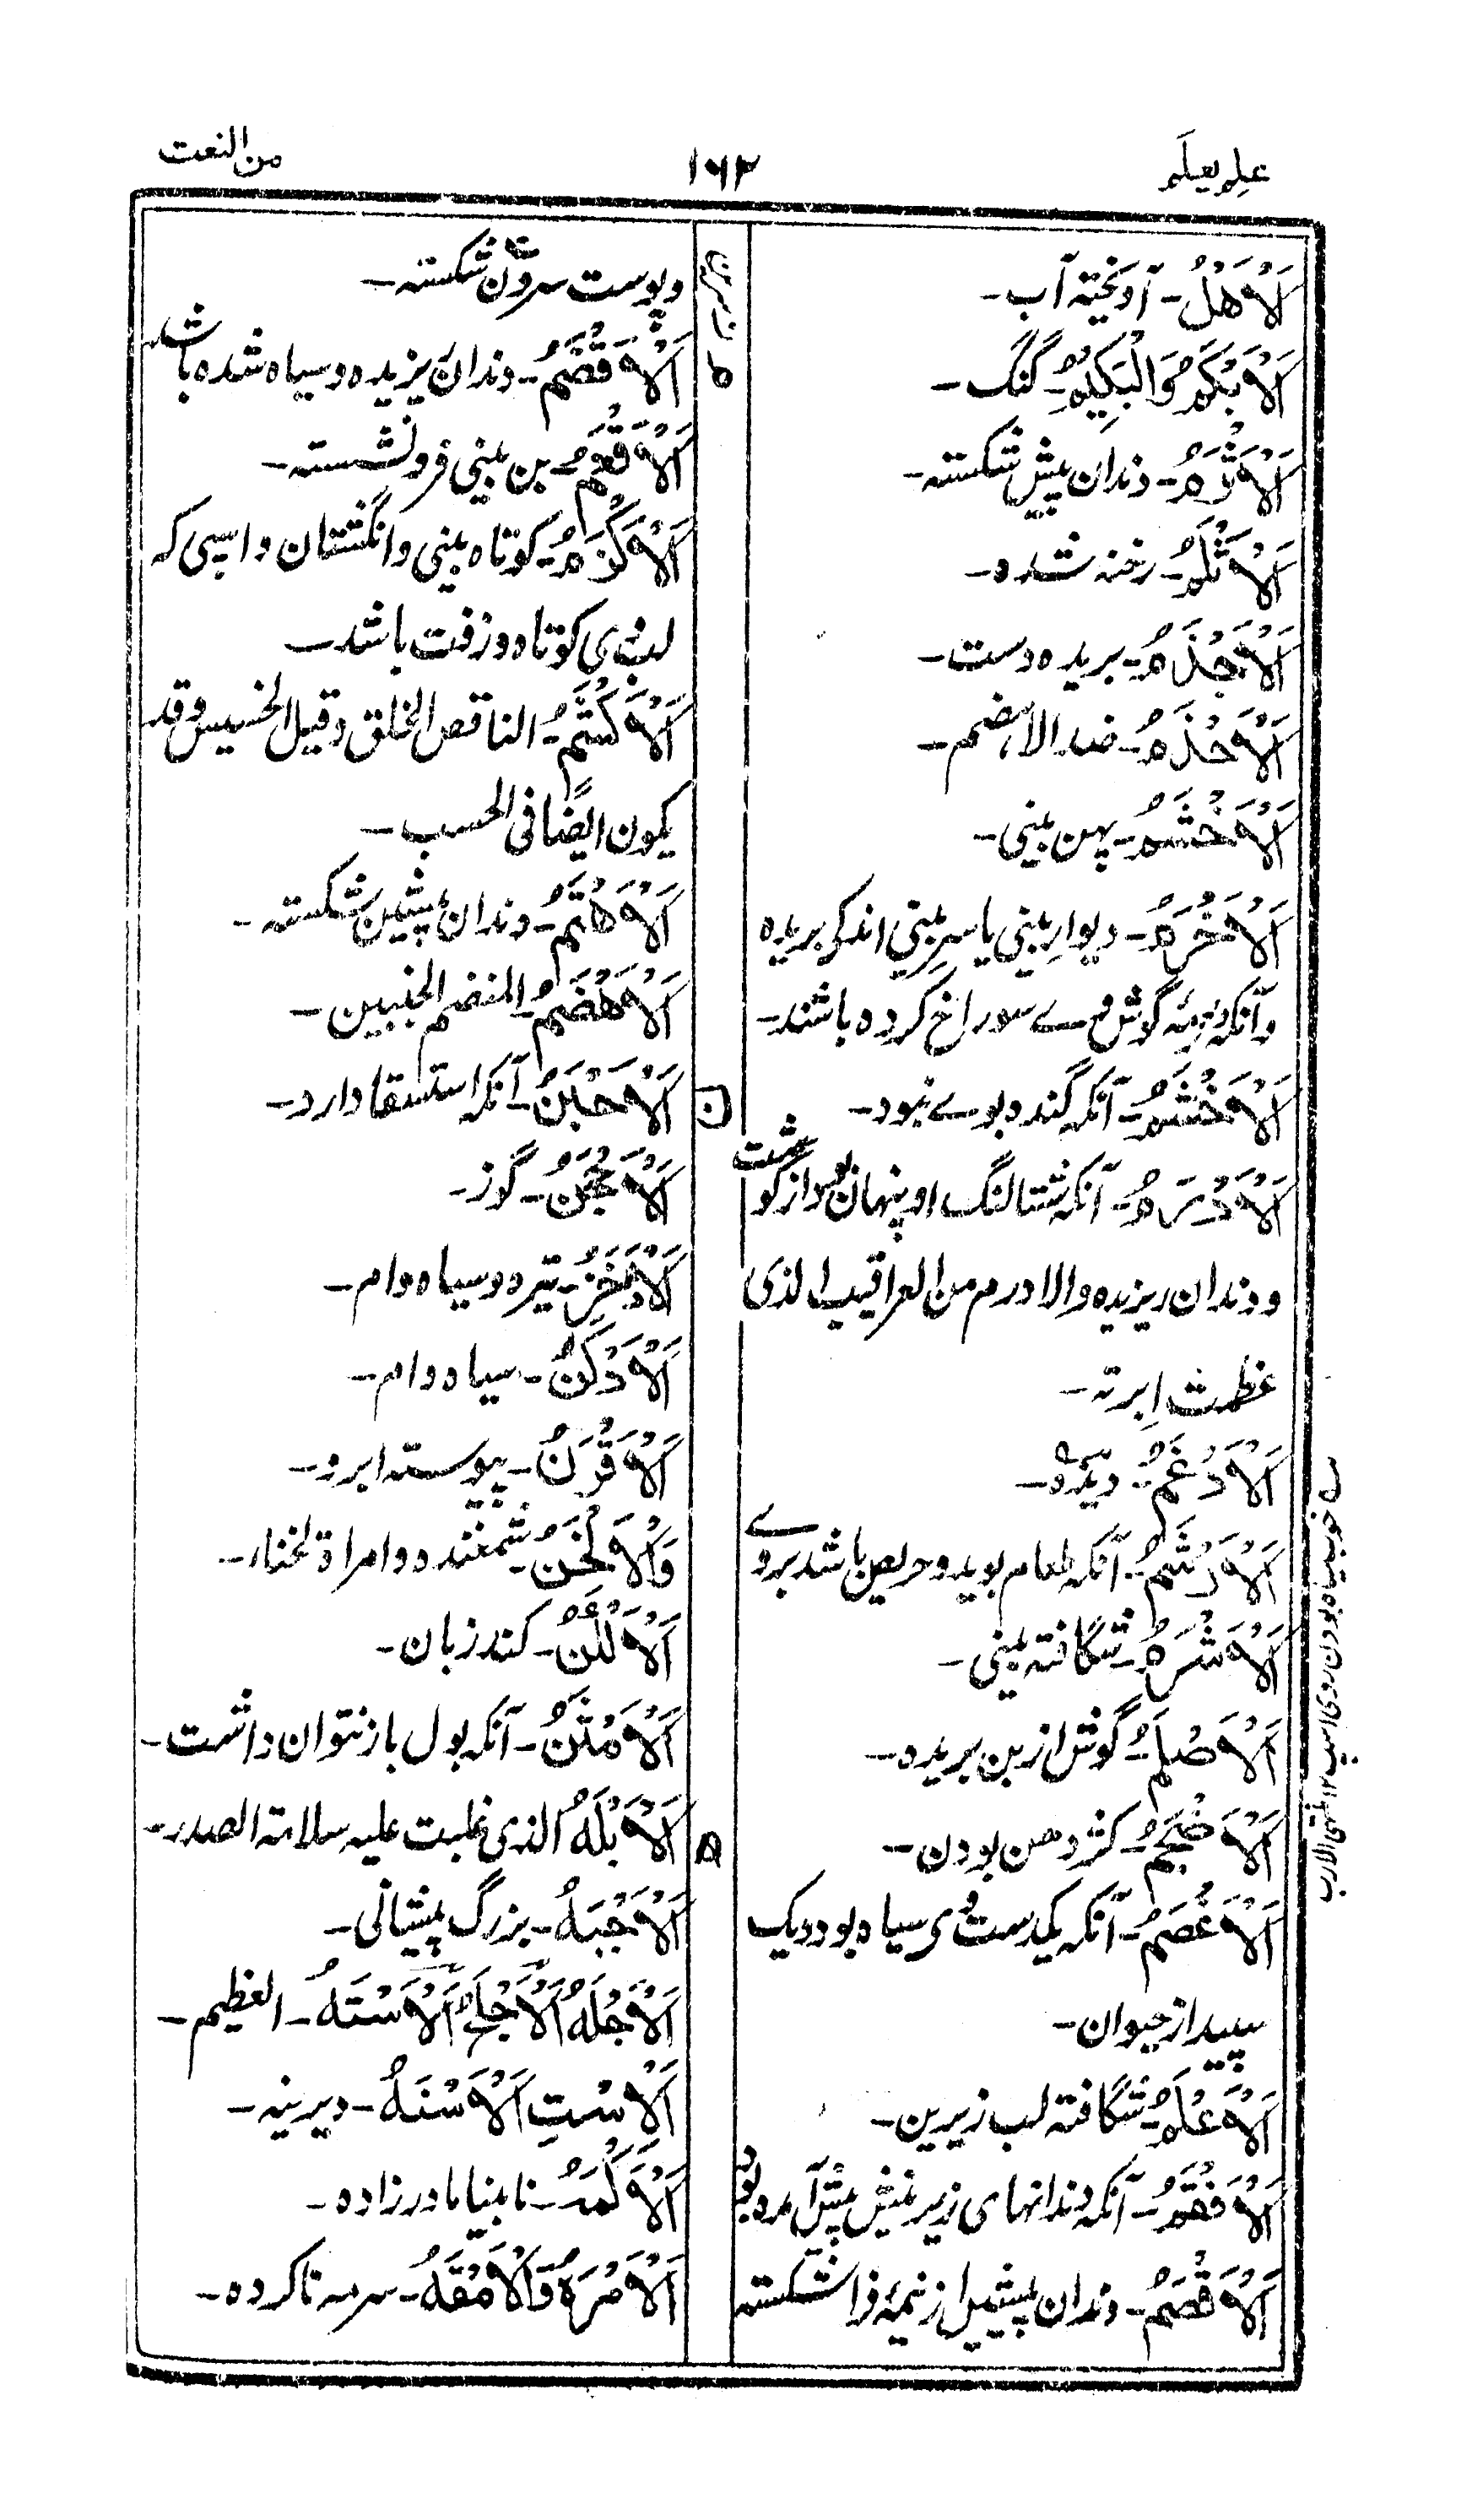 علِم يعلَم
۱۶۲
من النعت
اَلْاَهْدَلُ - آویخته آب -
اَلْاَبْكَمُ وَالْبَكِيْمُ - گنگ -
اَلْاَثْرَمُ - دندان پیش شکسته -
اَلْاَثْلَمُ - رخنه شده -
اَلْاَجْذَمُ - بریده دست -
اَلْاَحْذَمُ - ضد الاهضم -
اَلْاَخْثَمُ - پهن بینی -
اَلْاَخْرَمُ - دیوارِ بینی یا سرِ بینی اندکی بریده
وآنکه نرمهٔ گوش وے سوراخ کرده باشند -
اَلْاَخْشَمُ - آنکه گنده بوے نبود -
اَلْاَدْرَمُ - آنکه شتالنگ او پنهان بود از گوشت
و دندان ریزیده والادرم من العراقیب الذی
عظمت اِبرته -
اَلْاَدْغَمُ - دیزه -
اَلْاَرْشَمُ - آنکه طعام بوید و حریص باشد بروے
اَلْاَشْرَمُ - شگافته بینی -
اَلْاَصْلَمُ - گوش از بن بریده -
اَلْاَضْجَمُ - کژ دهن بودن -
اَلْاَعْصَمُ - آنکه یکدست وی سیاه بود و یک
سپید از حیوان -
اَلْاَعْلَمُ - شگافته لب زیرین -
اَلْاَفْقَمُ - آنکه دندانهای زیرینش پیش آمده بود
اَلْاَقْصَمُ - دندان پیشین از نیمهٔ فرا شکسته
و پوست سرون شکسته -
اَلْاَقْضَمُ - دندان یزیده و سیاه شده باشد
اَلْاَقْعَمُ - بن بینی فرو نشسته -
اَلْاَكْزَمُ - کوتاه بینی و انگشتان و اسپی که
لب وی کوتاه و زفت باشد -
اَلْاَكْشَمُ - الناقص الخلق وقیل الخسیس وقد
یکون ایضًا فی الحسب -
اَلْاَهْتَمُ - دندان پیشین شکسته -
اَلْاَهْضَمُ - المنضم الجنبین -
ن
اَلْاَحْبَنُ - آنکه استسقا دارد -
اَلْاَحْجَنُ - گوز -
اَلْاَدْخَنُ - تیره و سیاه وام -
اَلْاَدْكَنُ - سیاه وام -
اَلْاَقْرَنُ - پیوسته ابرو -
وَالْاَلْخَنُ - شمغنده وامراة لخناء -
اَلْاَلْكَنُ - کند زبان -
اَلْاَمْثَنُ - آنکه بول باز نتوان داشت -
ه
اَلْاَبْلَهُ الذی غلبت علیه سلامة الصدر -
اَلْاَجْبَهُ - بزرگ پیشانی -
اَلْاَجْلَهُ اَلْاَجْلَحُ اَلْاَسْتَهُ - العظیم -
اَلْاِسْتِ اَلْاَسْنَهُ - دیرینه -
اَلْاَكْمَهُ - نابینا مادرزاده -
اَلْاَمْرَهُ وَالْاَمْقَهُ - سرمه ناکرده -
بودن روی اسپ ۱۲ منتهی الارب